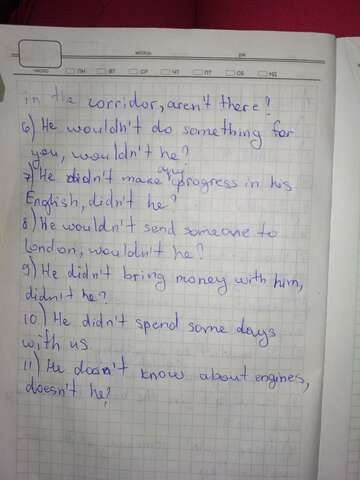 месяц
год
число
ПН
ВТ
СР
ЧТ
ПТ
СБ
НД
in the corridor, aren't there?
6) He wouldn't do something for
you, wouldn't he?
any
7) He didn't make progress in his
English, didn't he?
8) He wouldn't send someone to
London, wouldn't he?
9) He didn't bring money with him,
didn't he?
10) He didn't spend some days
with us
11) He doesn't know about engines,
doesn't he?